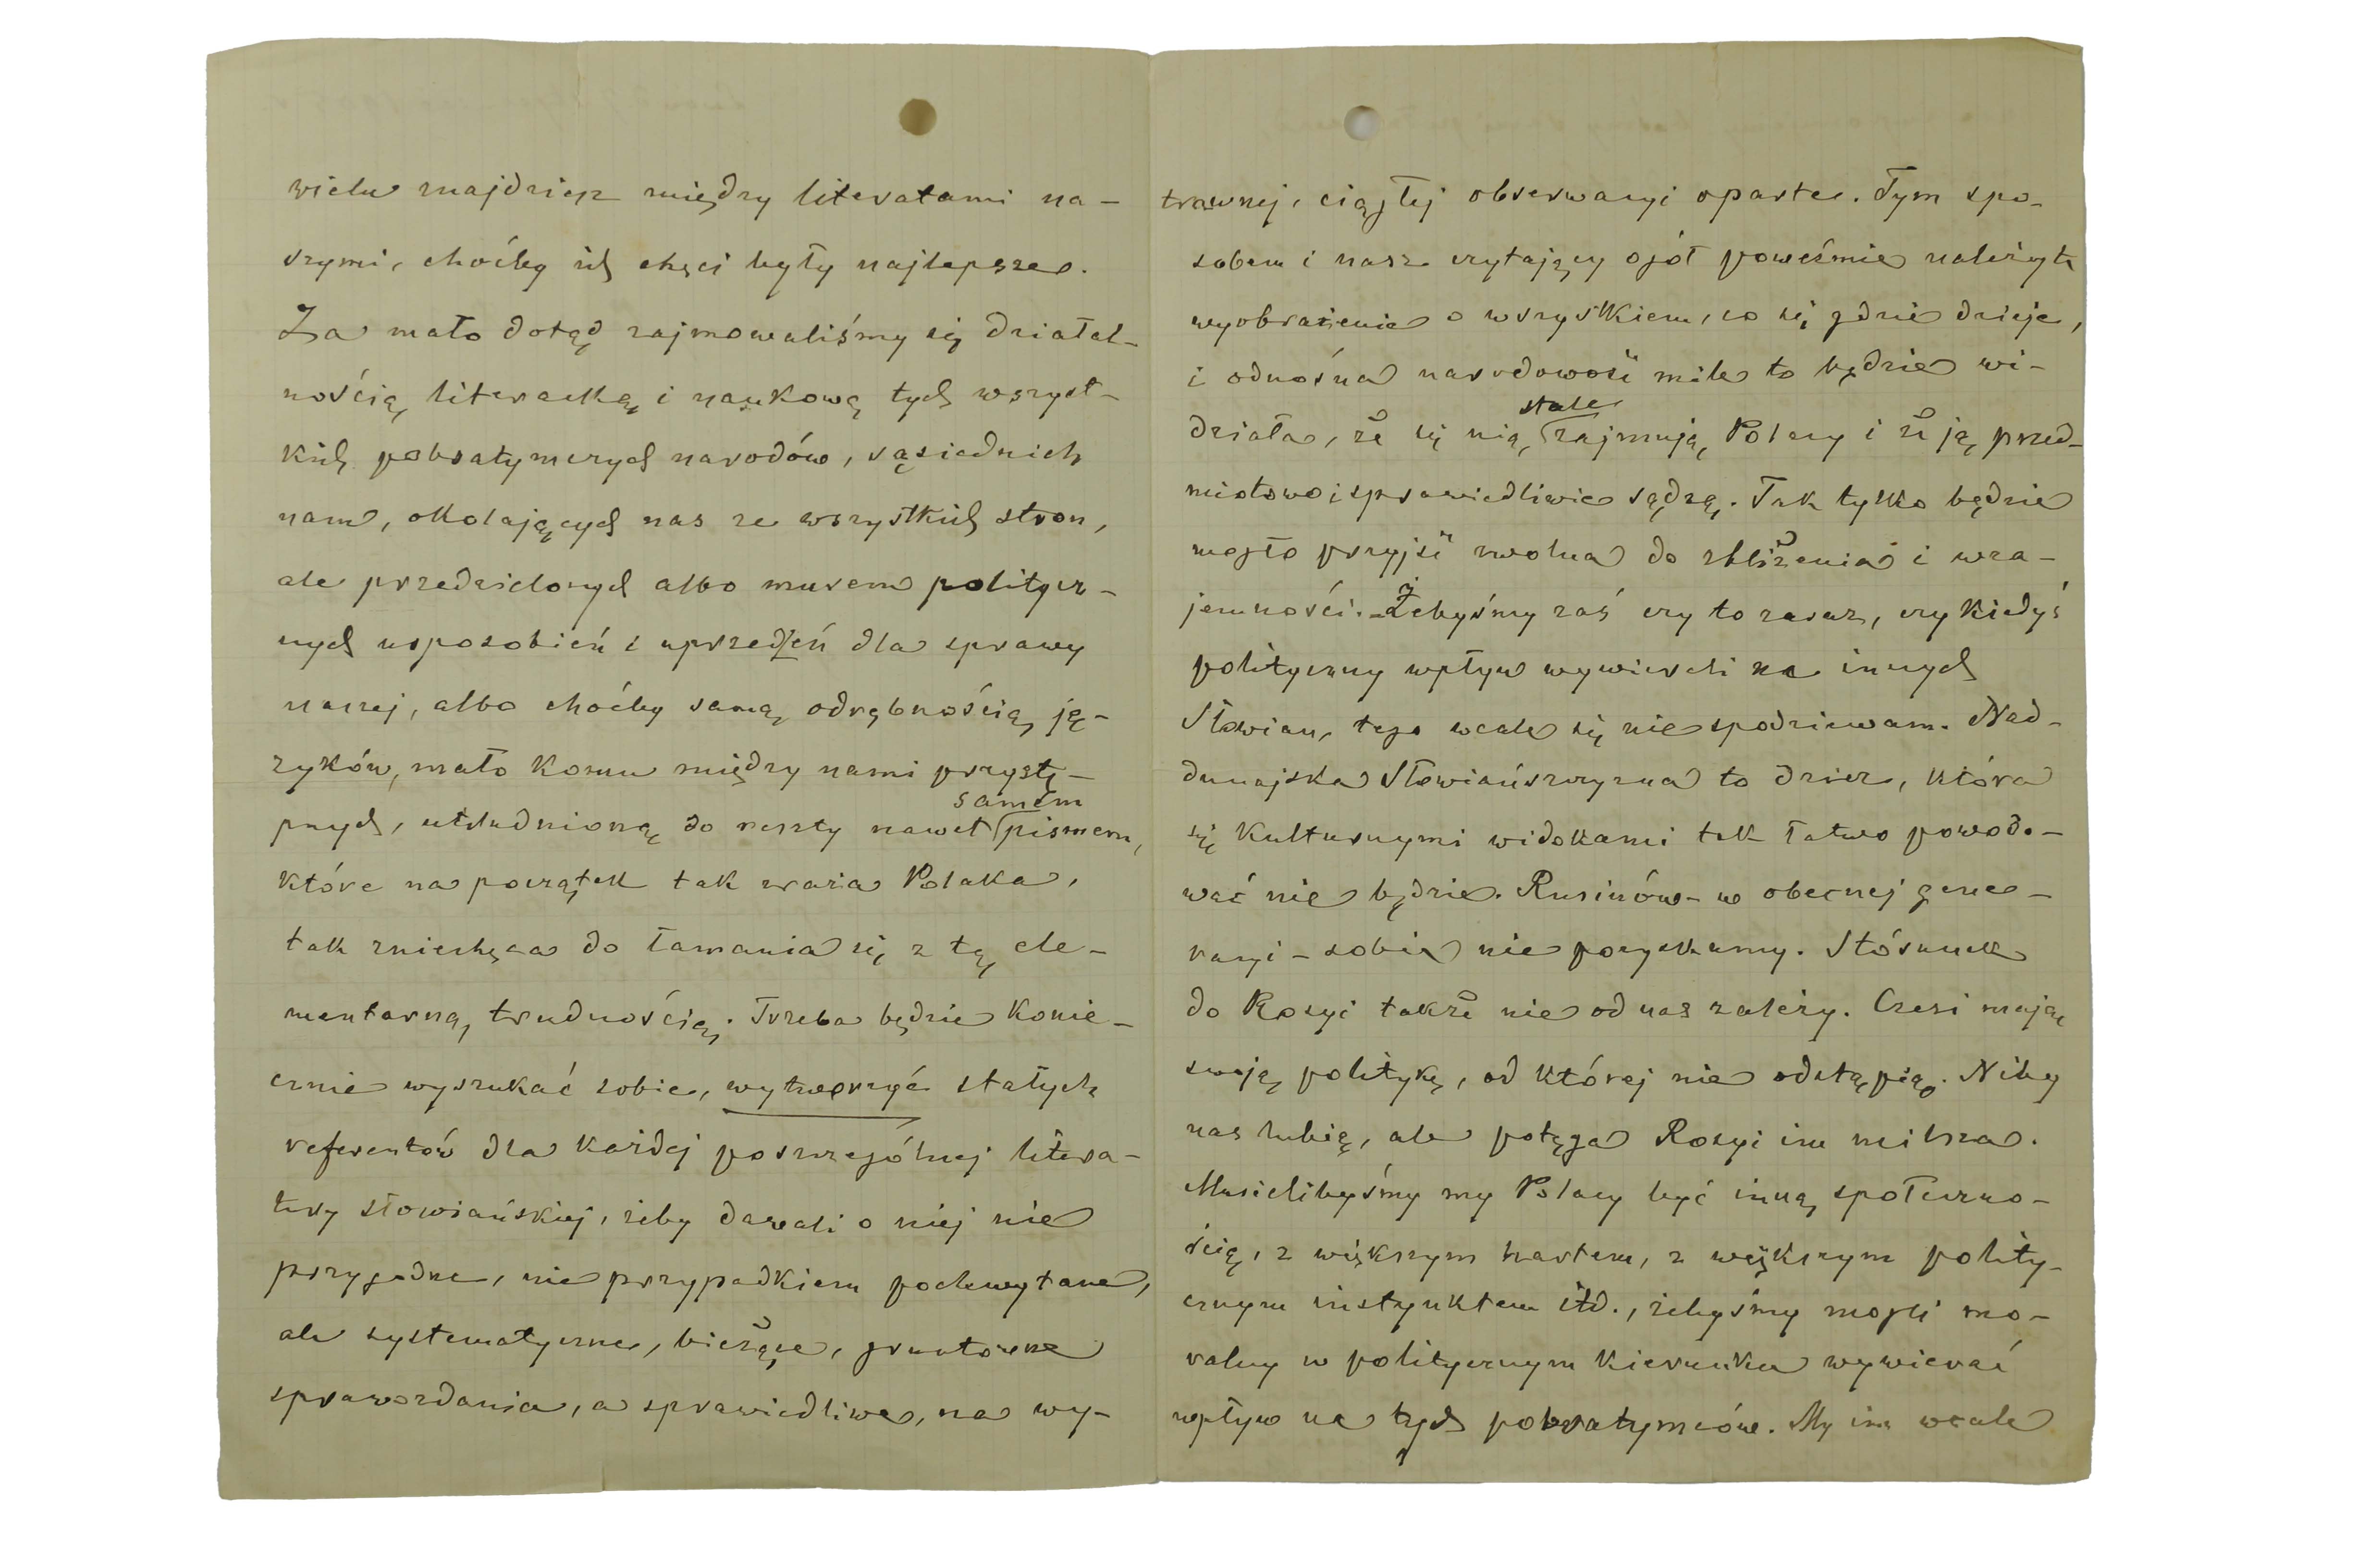 wielu znajdziesz między literatami na-
szymi, choćby ich chęci były najlepsze.
Za mało dotąd zajmowaliśmy się działal-
nością literacką i naukową tych wszyst-
kich pobratymczych narodów, sąsiednich
nam, okolających nas ze wszystkich stron,
ale przedzielonych albo murem politycz-
nych usposobień i uprzedzeń dla sprawy
naszej, albo choćby samą odrębnością ję-
zyków, mało komu między nami przystę-
pnych, utrudnioną do reszty nawet samém pismem,
które na początek tak zraża Polaka,
tak zniechęca do łamania się z tą ele-
mentarną trudnością. Trzeba będzie konie-
cznie wyszukać sobie, wytworzyć stałych
referentów dla każdej poszczególnej litera-
tury słowiańskiej, żeby dawali o niej nie
przygodne, nie przypadkiem pochwytane,
ale systematyczne, bieżące, gruntowne
sprawozdania, a sprawiedliwe, na wy-
trawnej, ciągłej obserwacyi oparte. Tym spo-
sobem i nasz czytający ogół poweźmie należyte
wyobrażenie o wszystkiem, co się gdzie dzieje,
i odnośna narodowość mile to będzie wi-
działa, że się nią stale zajmują Polacy i że ją przed-
miotowo i sprawiedliwie sądzą. Tak tylko będzie
mogło przyjść zwolna do zbliżenia i wza-
jemności. – Żebyśmy zaś czy to zaraz, czy kiedyś
polityczny wpływ wywierali na innych
Słowian, tego wcale się nie spodziewam. Nad-
dunajska Słowiańszczyzna to dzicz, która
się kulturnymi widokami tak łatwo powodo-
wać nie będzie. Rusinów – w obecnej gene-
racyi – sobie nie pozyskamy. Stósunek
do Rosyi także nie od nas zależy. Czesi mają
swoją politykę, od której nie odstąpią. Niby
nas lubią, ale potęga Rosyi im milsza.
Musielibyśmy my Polacy być inną społeczno-
ścią, z większym hartem, z większym polity-
cznym instynktem itd., żebyśmy mogli mo-
ralny w politycznym kierunku wywierać
wpływ na tych pobratymców. My im wcale